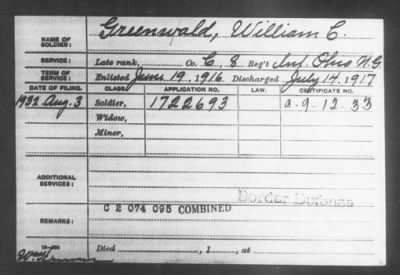 NAME OF SOLDIER: Greenwald, William C.
SERVICE: Late rank, Co. C, 8 Reg't Inf. Ohio N.G.
TERM OF SERVICE: Enlisted June 19, 1916 Discharged July 14, 1917
DATE OF FILING. CLASS. APPLICATION NO. LAW. CERTIFICATE NO.
1932 Aug. 3 Soldier, 1722693 a-9-12-33
Widow,
Minor,
ADDITIONAL SERVICES:
Border Defense
C 2 074 095 COMBINED
REMARKS:
Died , 1 , at